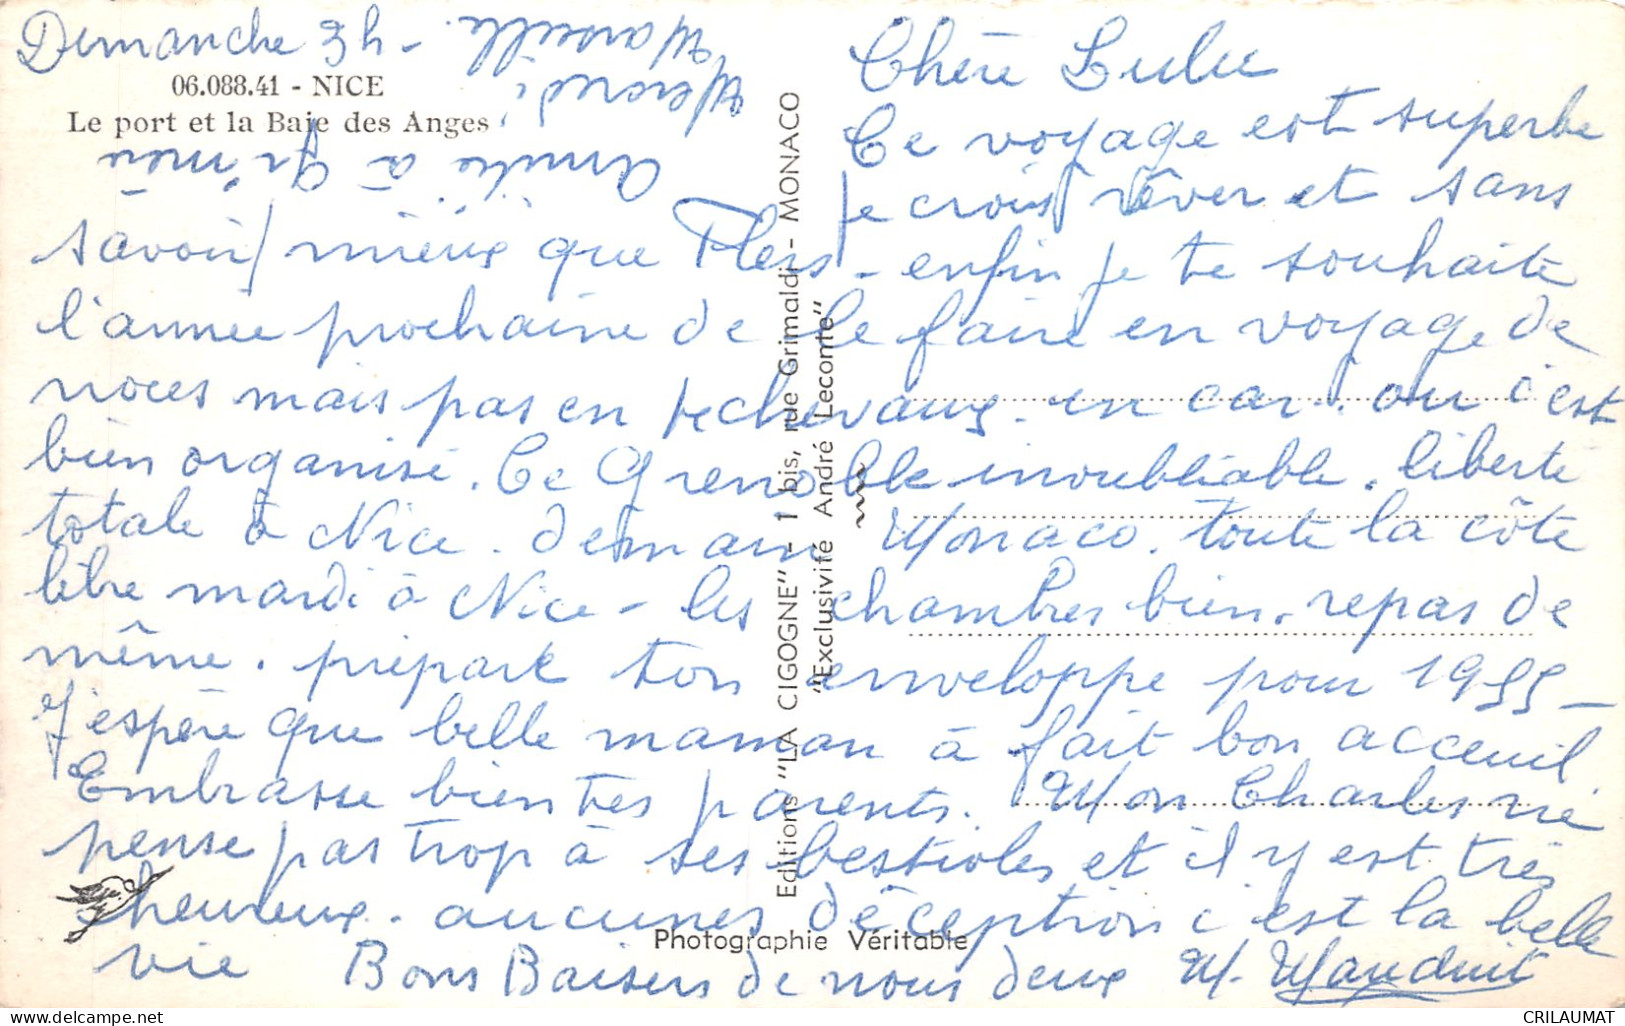 Dimanche 24 -
06.088.41 - NICE
Le port et la Baie des Anges
Mercredi
Marseille.
Amitié à
Chère Lulu
Ce voyage est superbe
je crois rêver et sans
savoir mieux que Flers - enfin je te souhaite
l'année prochaine de le faire en voyage de
noces mais pas en chevaux. en car. ou c'est
bien organisé. Ce Grenoble inoubliable. liberté
totale à Nice. demain Monaco. toute la côte
libre mardi à Nice - les chambres bien. repas de
même. prépare ton enveloppe pour 1955 -
J'espère que belle maman à fait bon acceuil
Embrasse bien tes parents. Mon Charles ne
pense pas trop à ses bestioles et il y est très
heureux. aucunes déception c'est la belle
vie Bons Baisers de nous deux M. Mauduit
Editions "LA CIGOGNE" - 1 bis, rue Grimaldi - MONACO
"Exclusivité André Leconte"
Photographie Véritable
CRILAUMAT